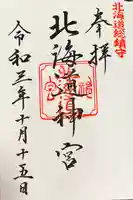 北海道総鎮守
奉拝
北海道神宮
令和三年十月十五日